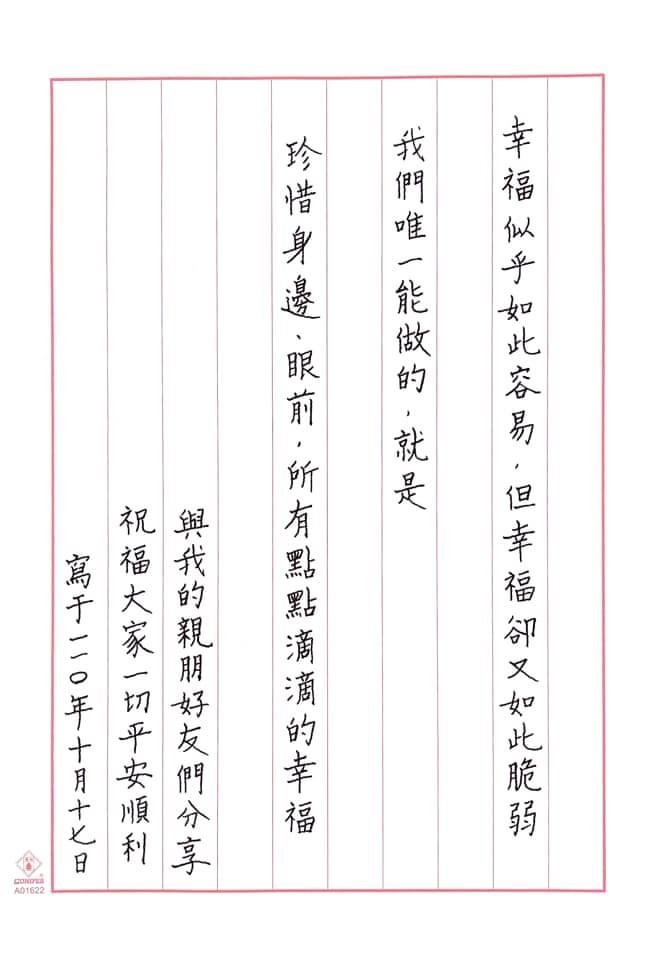 幸福似乎如此容易，但幸福卻又如此脆弱
我們唯一能做的，就是
珍惜身邊、眼前，所有點點滴滴的幸福
與我的親朋好友們分享
祝福大家一切平安順利
寫于一一〇年十月十七日
A01622